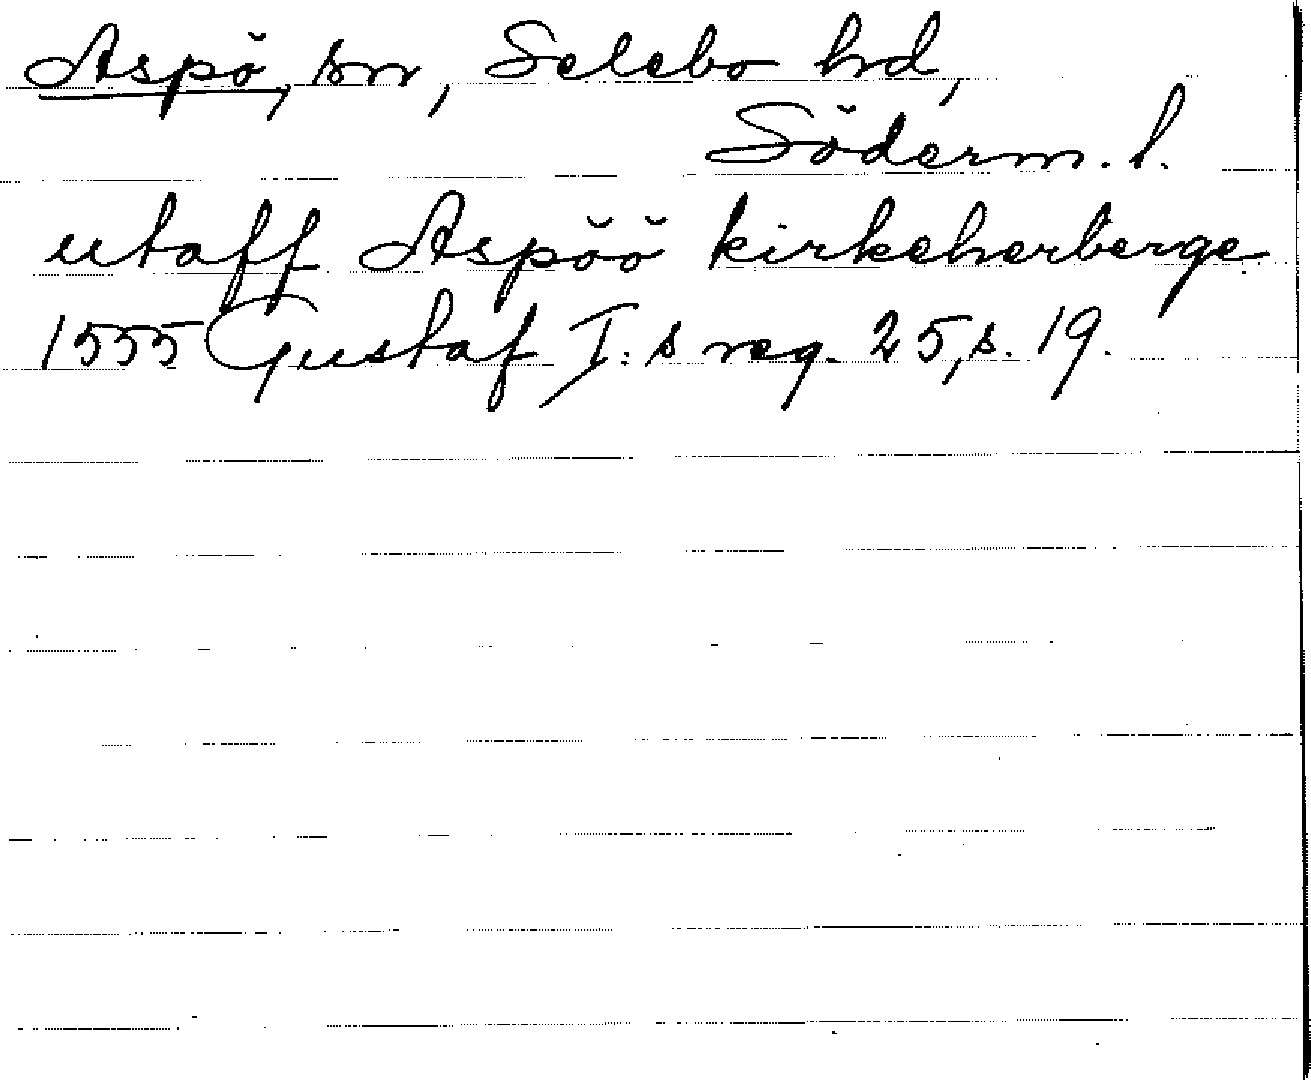 Aspö, sn, Selebo hd,
Söderm. l.
utaff Aspöö kirkeherberge
1555 Gustaf I:s reg. 25, s. 19.